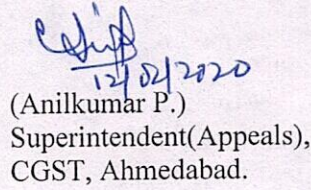 12/02/2020
(Anilkumar P.)
Superintendent(Appeals),
CGST, Ahmedabad.